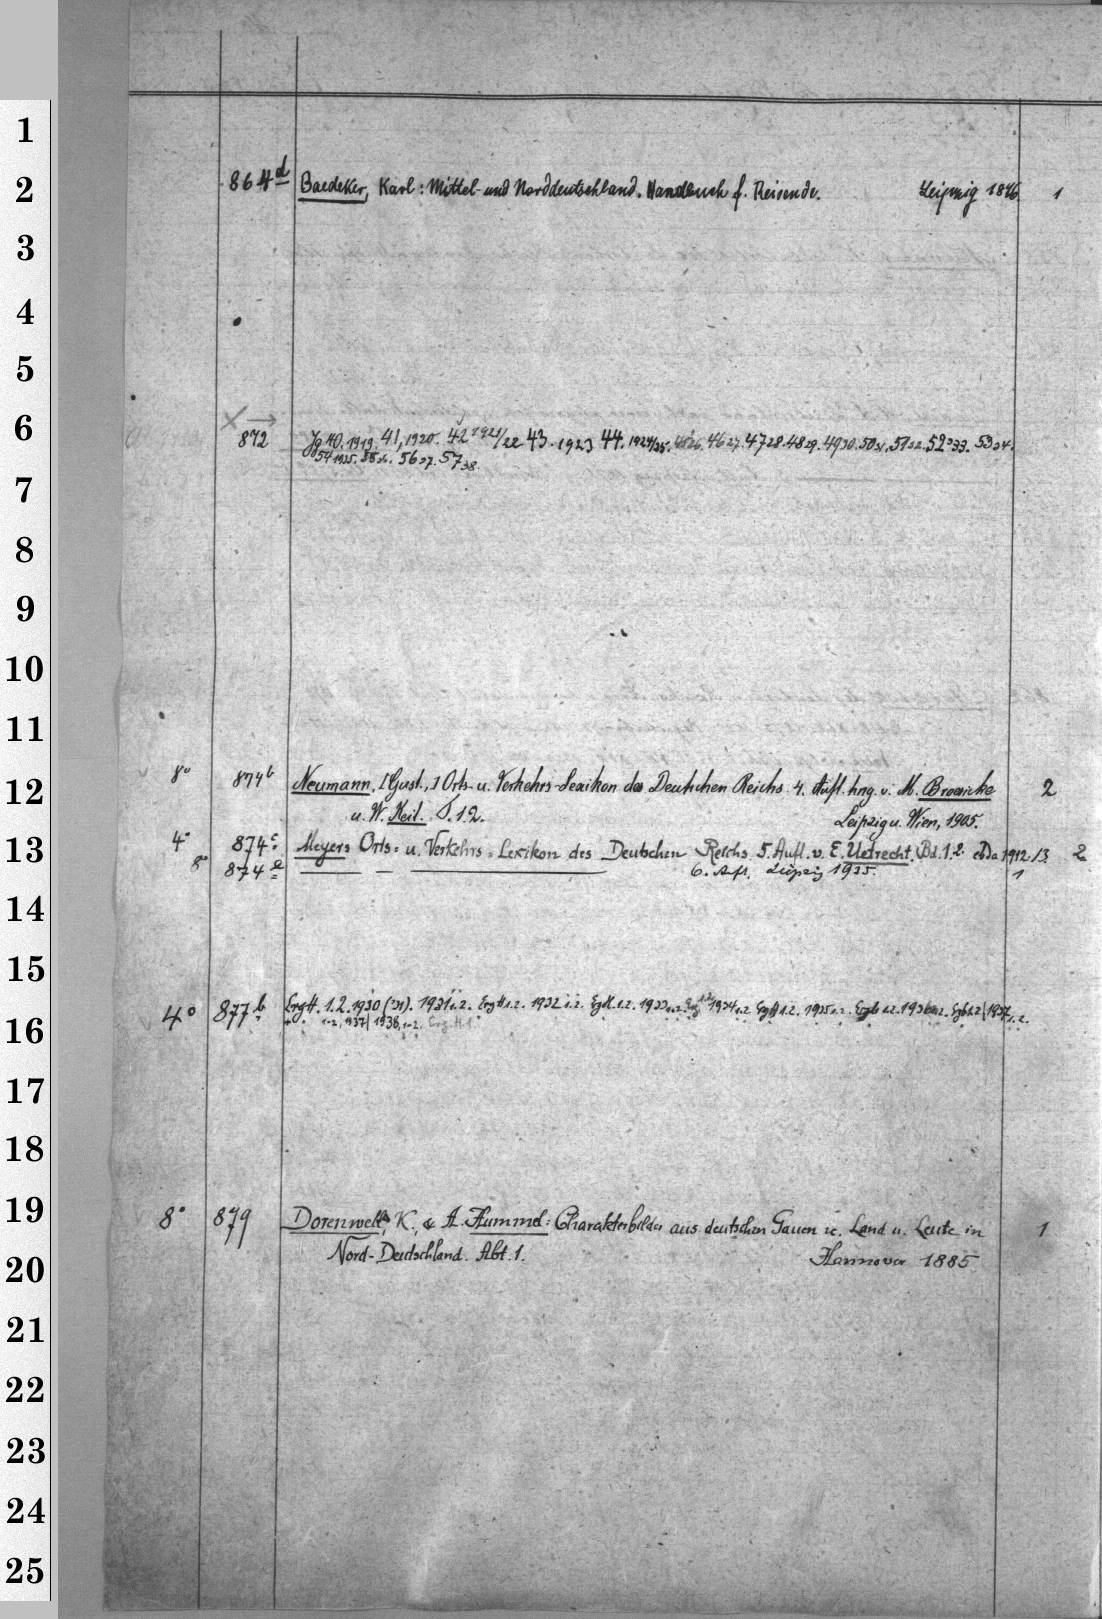 1
2
864d Baedeker, Karl: Mittel- und Norddeutschland. Handbuch f. Reisende. Leipzig 1 1
3
4
5
6
872 Jg 40. 1919. 41, 1920. 42 1921/22 43. 1923 44. 1924/25. 46 27. 47 28. 48 29. 49 30. 50 31. 51 32. 52 33. 53 34.
54 1935. 55 36. 56 37. 57 38.
7
8
9
10
11
12
8° 874b Neumann, [Gust.,] Orts- u. Verkehrs-Lexikon des Deutschen Reichs. 4. Aufl. hrsg. v. M. Broesicke 2
u. W. Keil. T. 1.2. Leipzig u. Wien, 1905.
13
4° 874c Meyers Orts- u. Verkehrs-Lexikon des Deutschen Reichs 5. Aufl. v. E. Uetrecht. Bd. 1.2. ebDa 1912/13 2
8° 874 — — — 6. Aufl. Leipzig 1935. 1
14
15
16
4° 877b ErgH. 1.2. 1930 (31). 1931 1.2. ErgH 1.2. 1932 1.2. 1.2. 1933 1.2. 1934 1.2. ErgH 1.2. 1935 1.2. 1.2. 1936 1.2. 1.2 | 1937 1.2.
1-2, 1937 | 1938, 1-2. Erg.H.1.
17
18
19
8° 879 Dorenwell, K., & A. Hummel: Charakterbilder aus deutschen Gauen etc. Land u. Leute in 1
Nord-Deutschland. Abt. 1. Hannover 1885
20
21
22
23
24
25